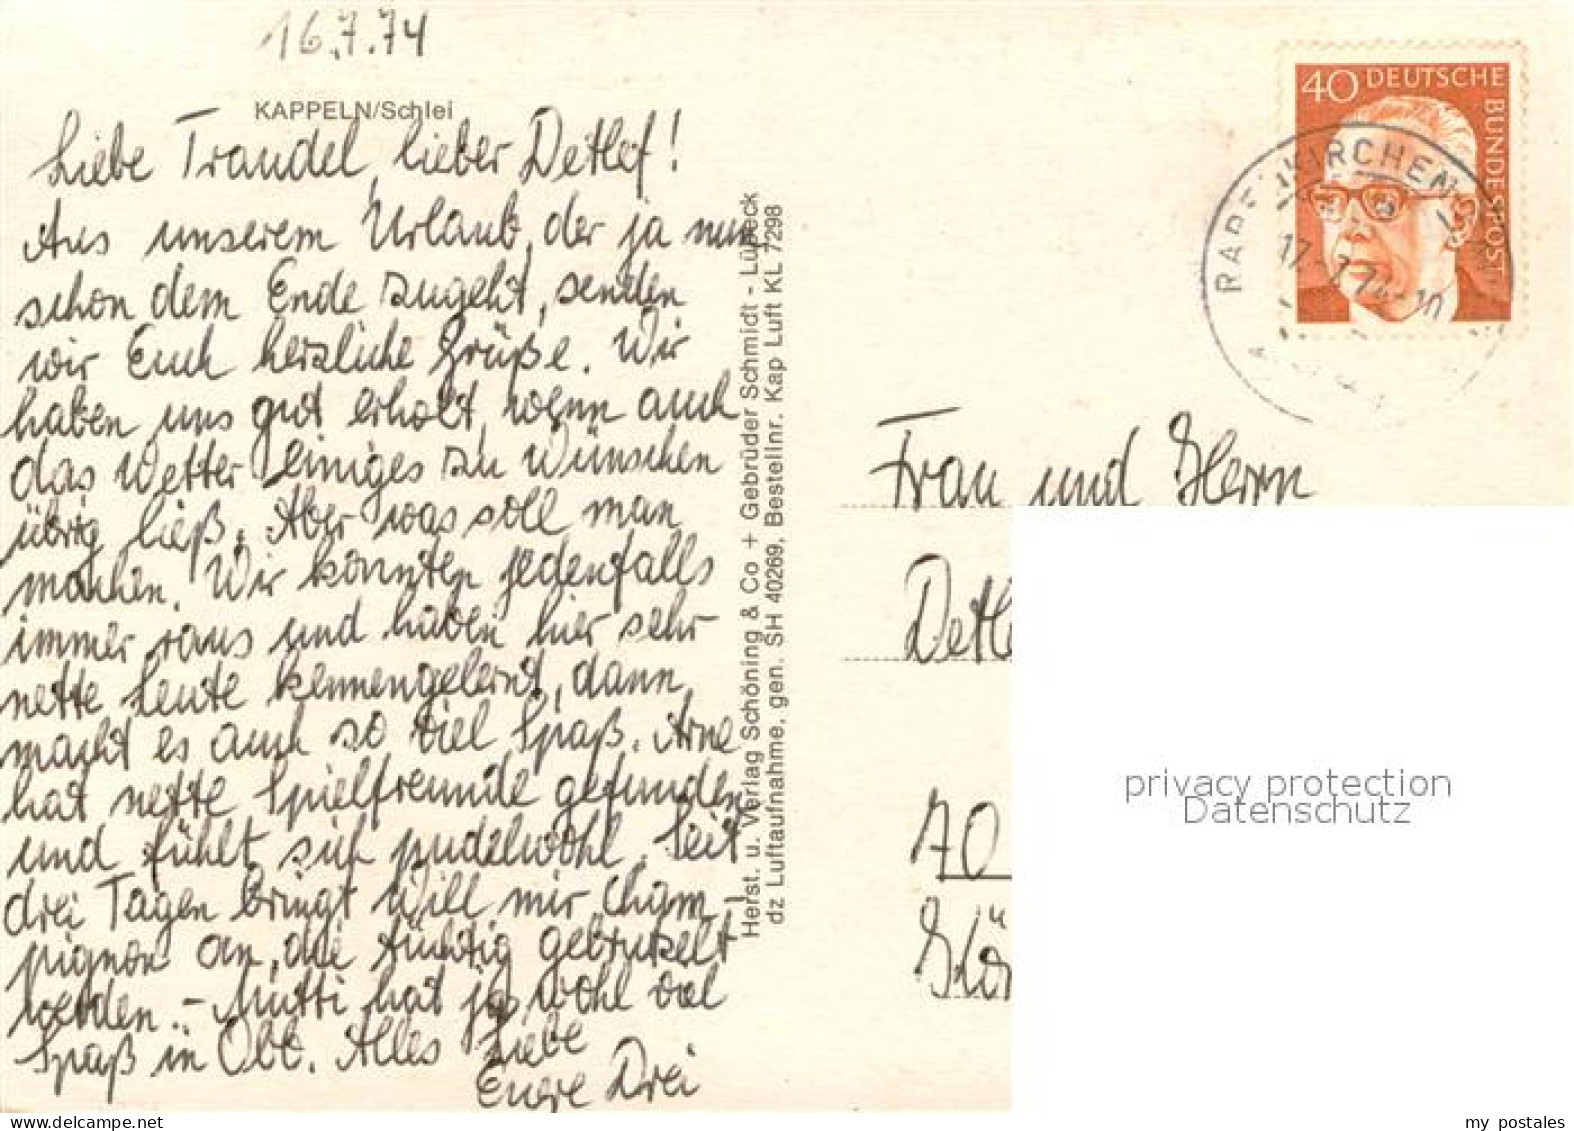 16.7.74
KAPPELN/Schlei
Liebe Traudel, lieber Detlef!
Aus unserem Urlaub, der ja nun
schon dem Ende zugeht, senden
wir Euch herzliche Grüße. Wir
haben uns gut erholt, wenn auch
das Wetter einiges zu wünschen
übrig ließ. Aber was soll man
machen. Wir konnten jedenfalls
immer raus und haben hier sehr
nette Leute kennengelernt, dann
macht es auch so viel Spaß. Arne
hat nette Spielfreunde gefunden
und fühlt sich pudelwohl. Seit
drei Tagen bringt Will mir Cham-
pignon an, die tüchtig gebrutzelt
werden. - Mutti hat ja wohl viel
Spaß in Obt. Alles Liebe
Eure Drei
Herst. u. Verlag Schöning & Co + Gebrüder Schmidt - Lübeck
dz Luftaufnahme, gen. SH 40269, Bestellnr. Kap Luft KL 7298
40 DEUTSCHE BUNDESPOST
RABENKIRCHEN
17.-7.74-10
Frau und Herrn
Detle
70
Klör
privacy protection
Datenschutz
my postales